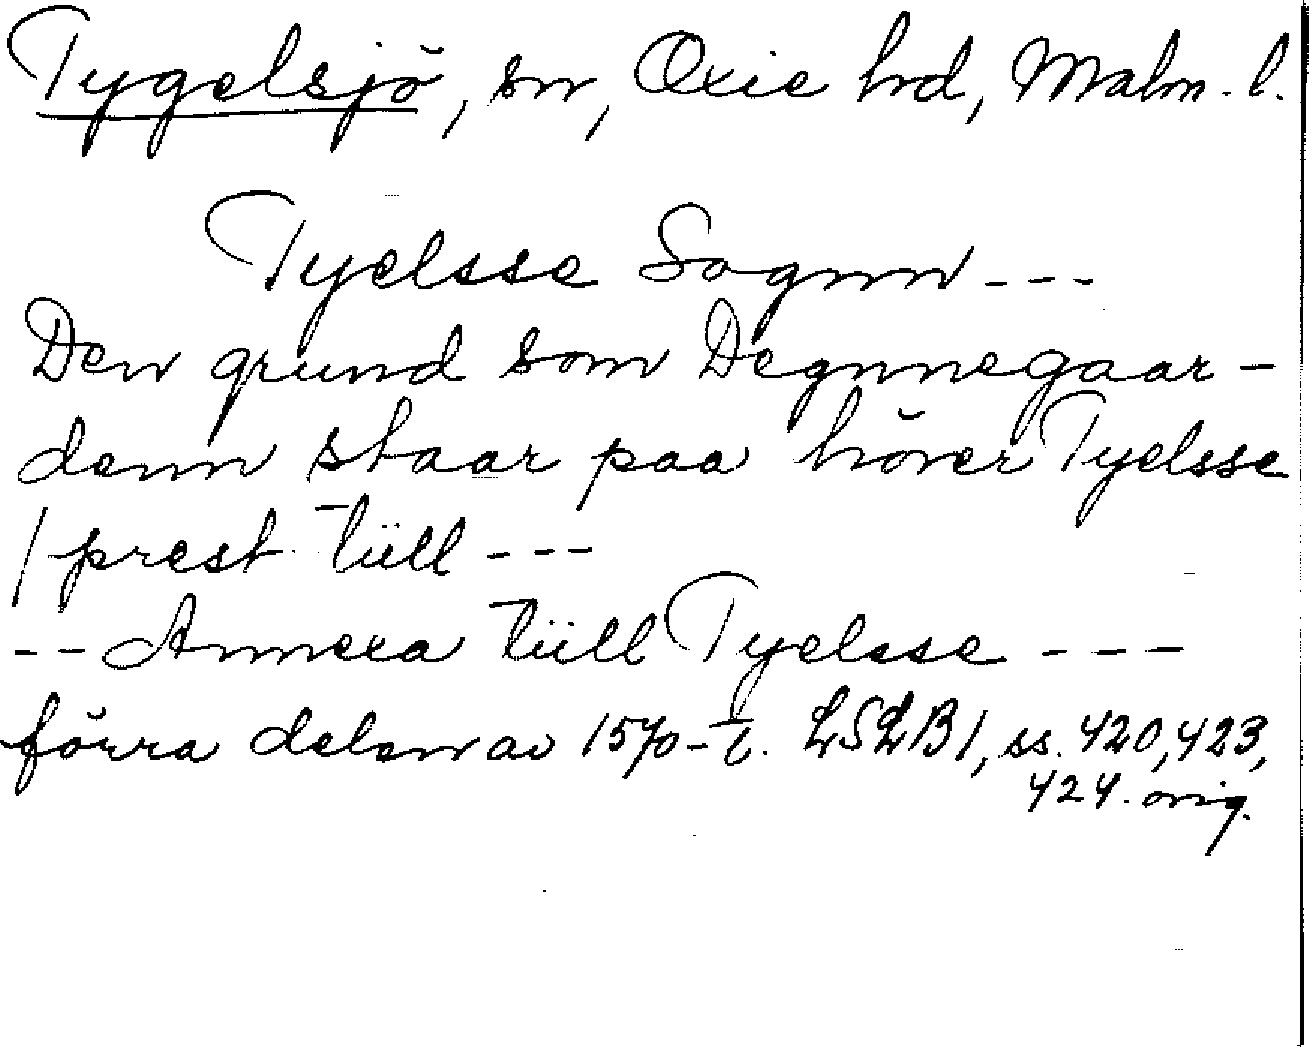 Tygelsjö, sn, Oxie hd, Malm. l.
Tyelsse Sognn ---
Den grund som Degnnegaar-
denn staar paa hörer Tyelsse
/prest tüll ---
-- Annexa tüll Tyelsse ---
förra delen av 1570-t. LSLB1, ss. 420, 423,
424. orig.